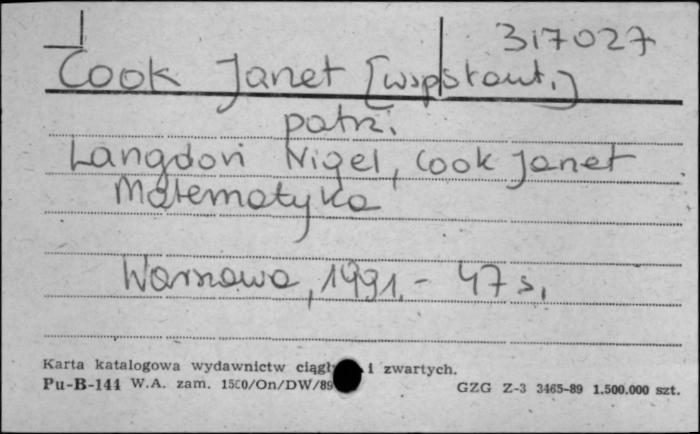 317027
Cook Janet [wspłaut.]
patrz.
Langdon Nigel, Cook Janet
Matematyka
Warszawa, 1991. - 47 s.
Karta katalogowa wydawnictw ciągły i zwartych.
Pu-B-144 W.A. zam. 1500/On/DW/89 GZG Z-3 3465-89 1.500.000 szt.